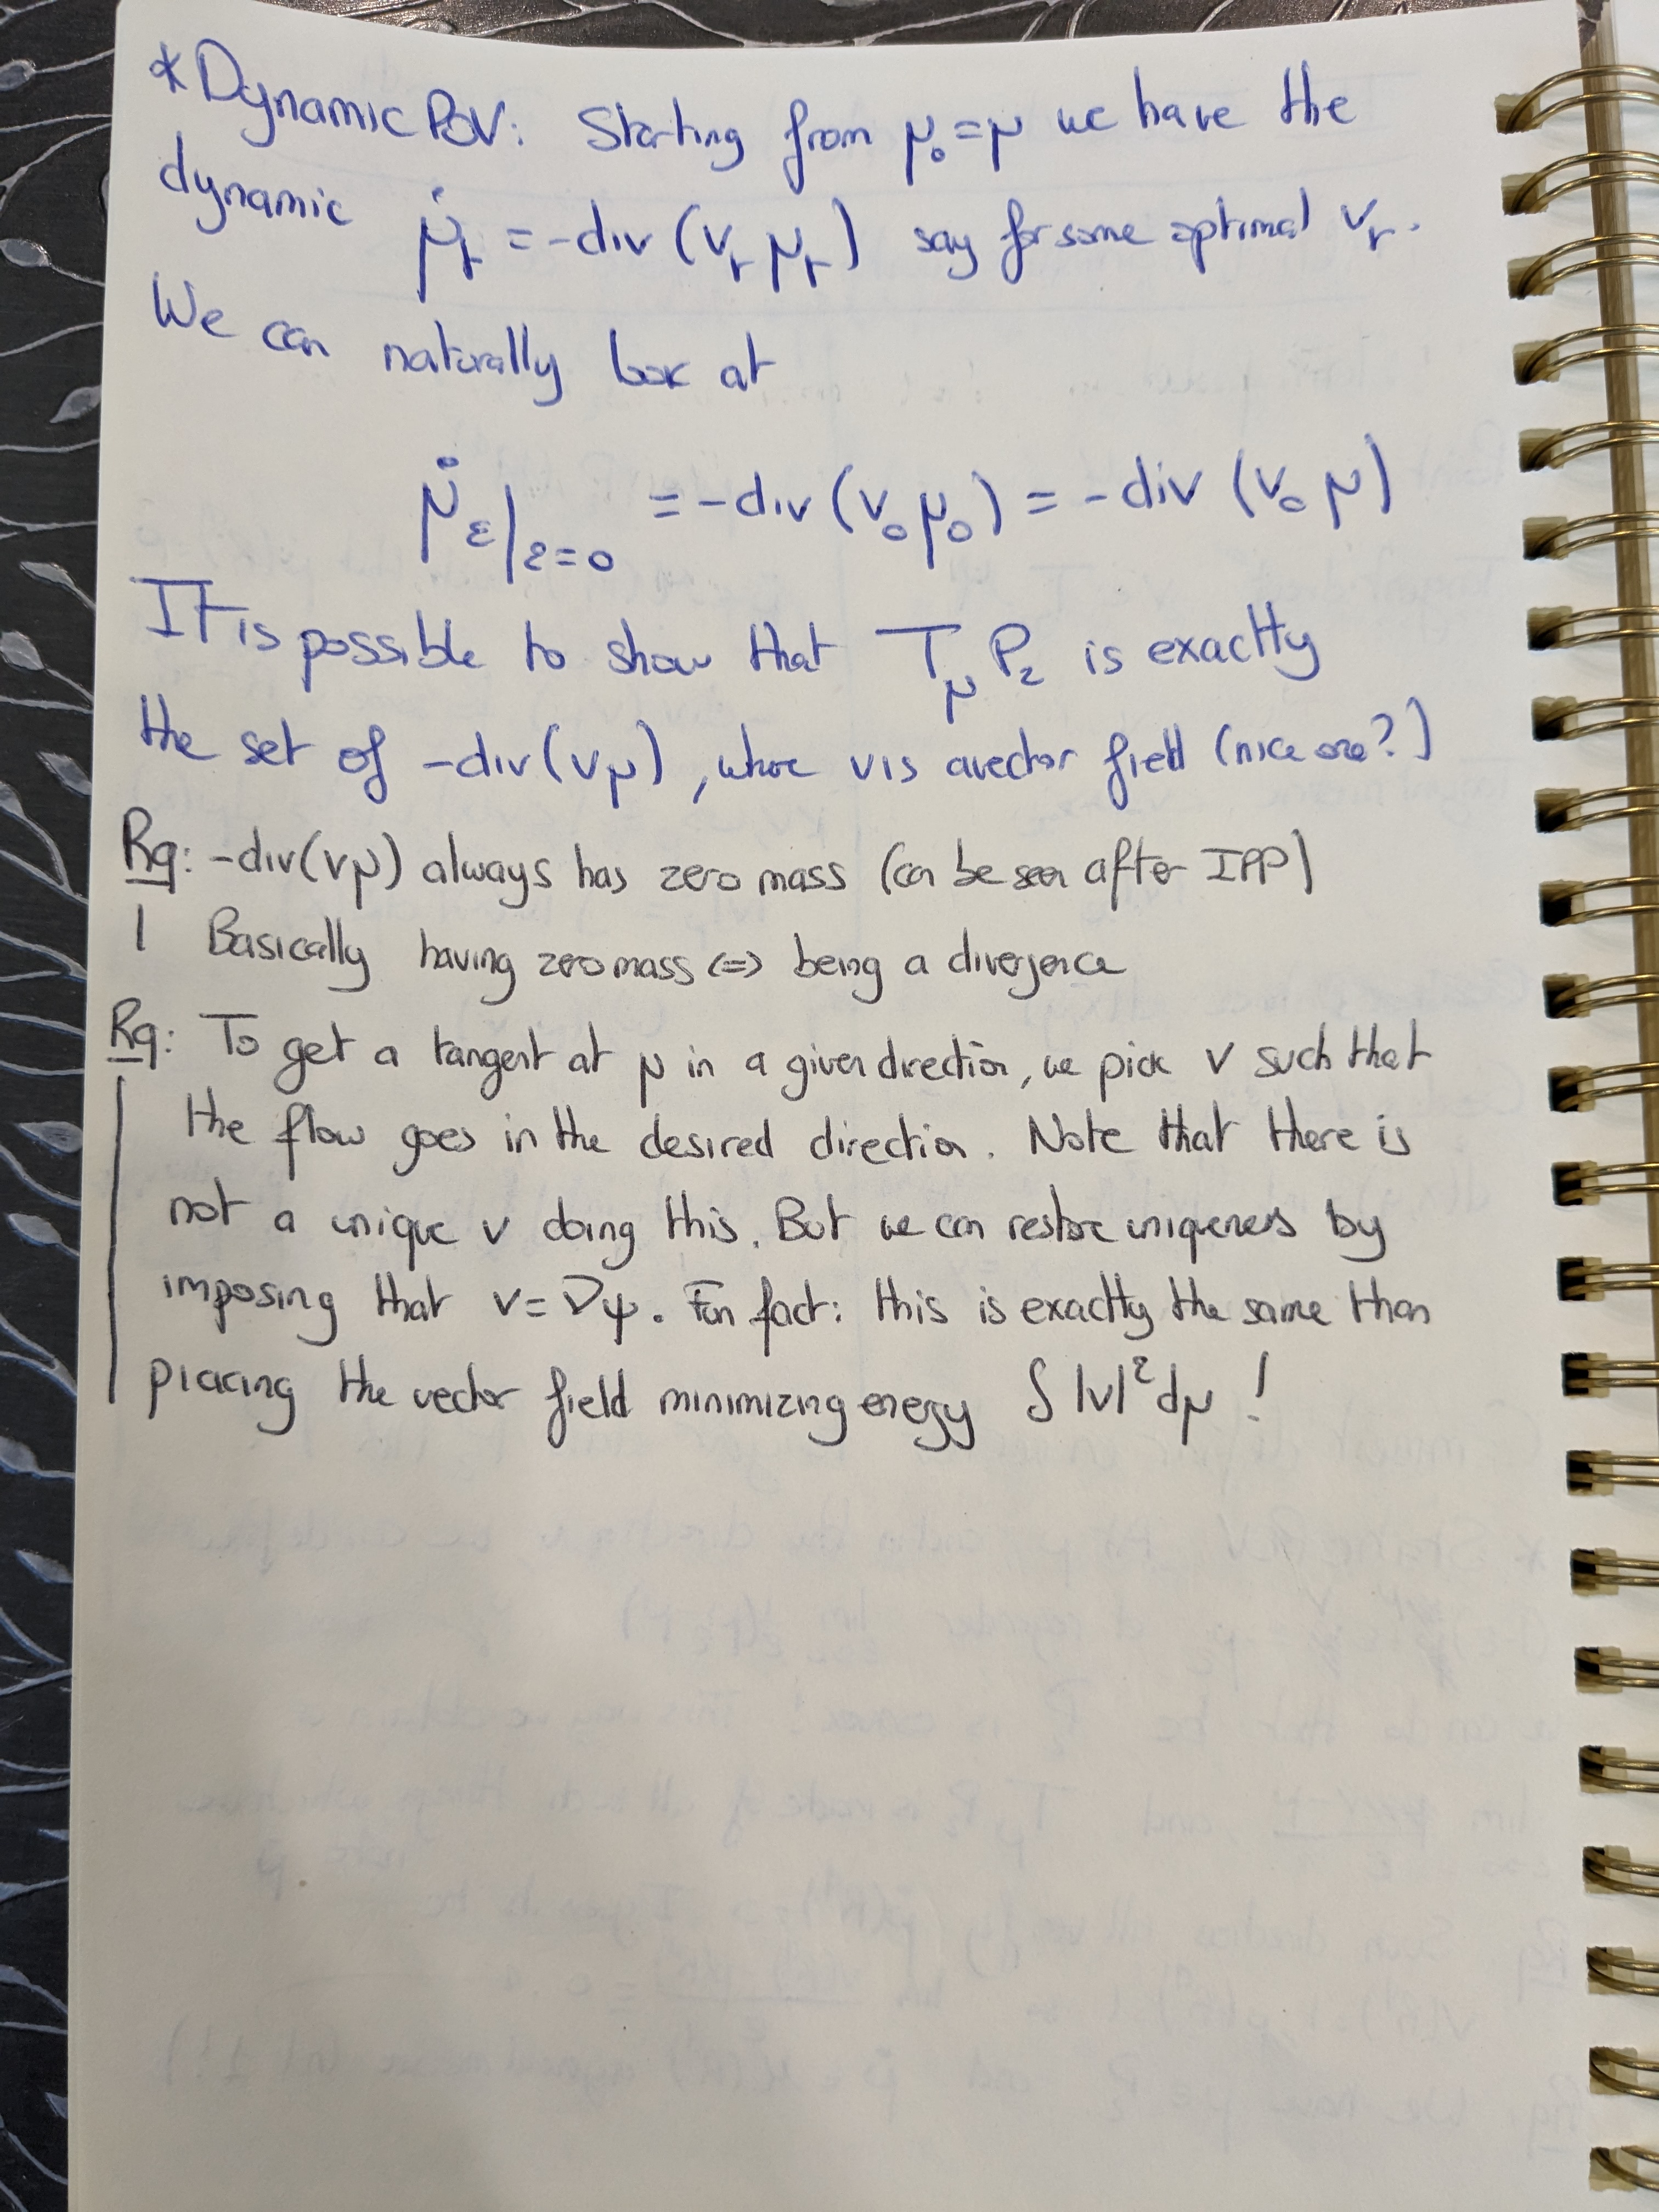 * Dynamic POV: Starting from μ₀ = μ we have the
dynamic μ̇ₜ = -div (vₜ μₜ) say for some optimal vₜ.
We can naturally look at
μ̇_ε|_ε=0 = -div (v₀ μ₀) = -div (v₀ μ)
It is possible to show that T_μ P₂ is exactly
the set of -div(vμ), where v is a vector field (nice one?)
Rq: -div(vμ) always has zero mass (can be seen after IPP)
Basically having zero mass <=> being a divergence
Rq: To get a tangent at μ in a given direction, we pick v such that
the flow goes in the desired direction. Note that there is
not a unique v doing this. But we can restore uniqueness by
imposing that v = ∇ψ. Fun fact: this is exactly the same than
picking the vector field minimizing energy ∫ |v|² dμ !